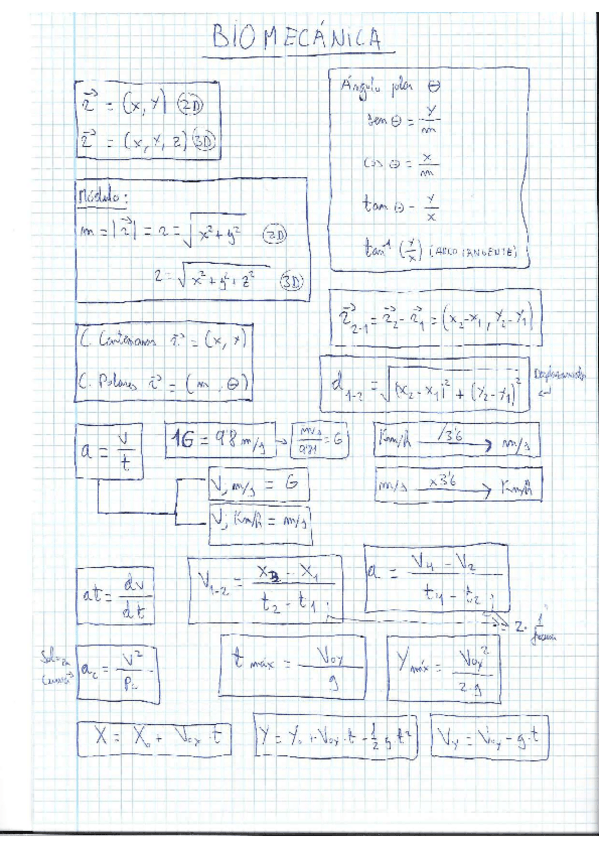 BIOMECÁNICA
r⃗ = (x, y) (2D)
r⃗ = (x, y, z) (3D)
Ángulo polar Θ
sen Θ = y/m
cos Θ = x/m
tan Θ = y/x
tan⁻¹ (y/x) (ARCOTANGENTE)
Módulo:
m = |r⃗| = r = √x² + y² (2D)
r = √x² + y² + z² (3D)
r⃗₂₋₁ = r⃗₂ - r⃗₁ = (x₂-x₁, y₂-y₁)
C. Cartesianas r⃗ = (x, y)
C. Polares r⃗ = (m, Θ)
d₁₋₂ = √(x₂-x₁)² + (y₂-y₁)² Desplazamiento
a = v/t
1G = 9'8 m/s → m/s / 9'81 = G
Km/h /3'6 → m/s
m/s x3'6 → Km/h
V; m/s = G
V; Km/h = m/s
at = dv/dt
V₁₋₂ = x₂ - x₁ / t₂ - t₁;
a = V₄ - V₂ / t₄ - t₂;
2 · 1/frecuen
Solo en curvas →
a꜀ = v²/ρ꜀
t máx = V₀y/g
Y máx = V₀y²/2·g
X = X₀ + V₀x · t
Y = Y₀ + V₀y · t - ½ g · t²
Vy = V₀y - g · t